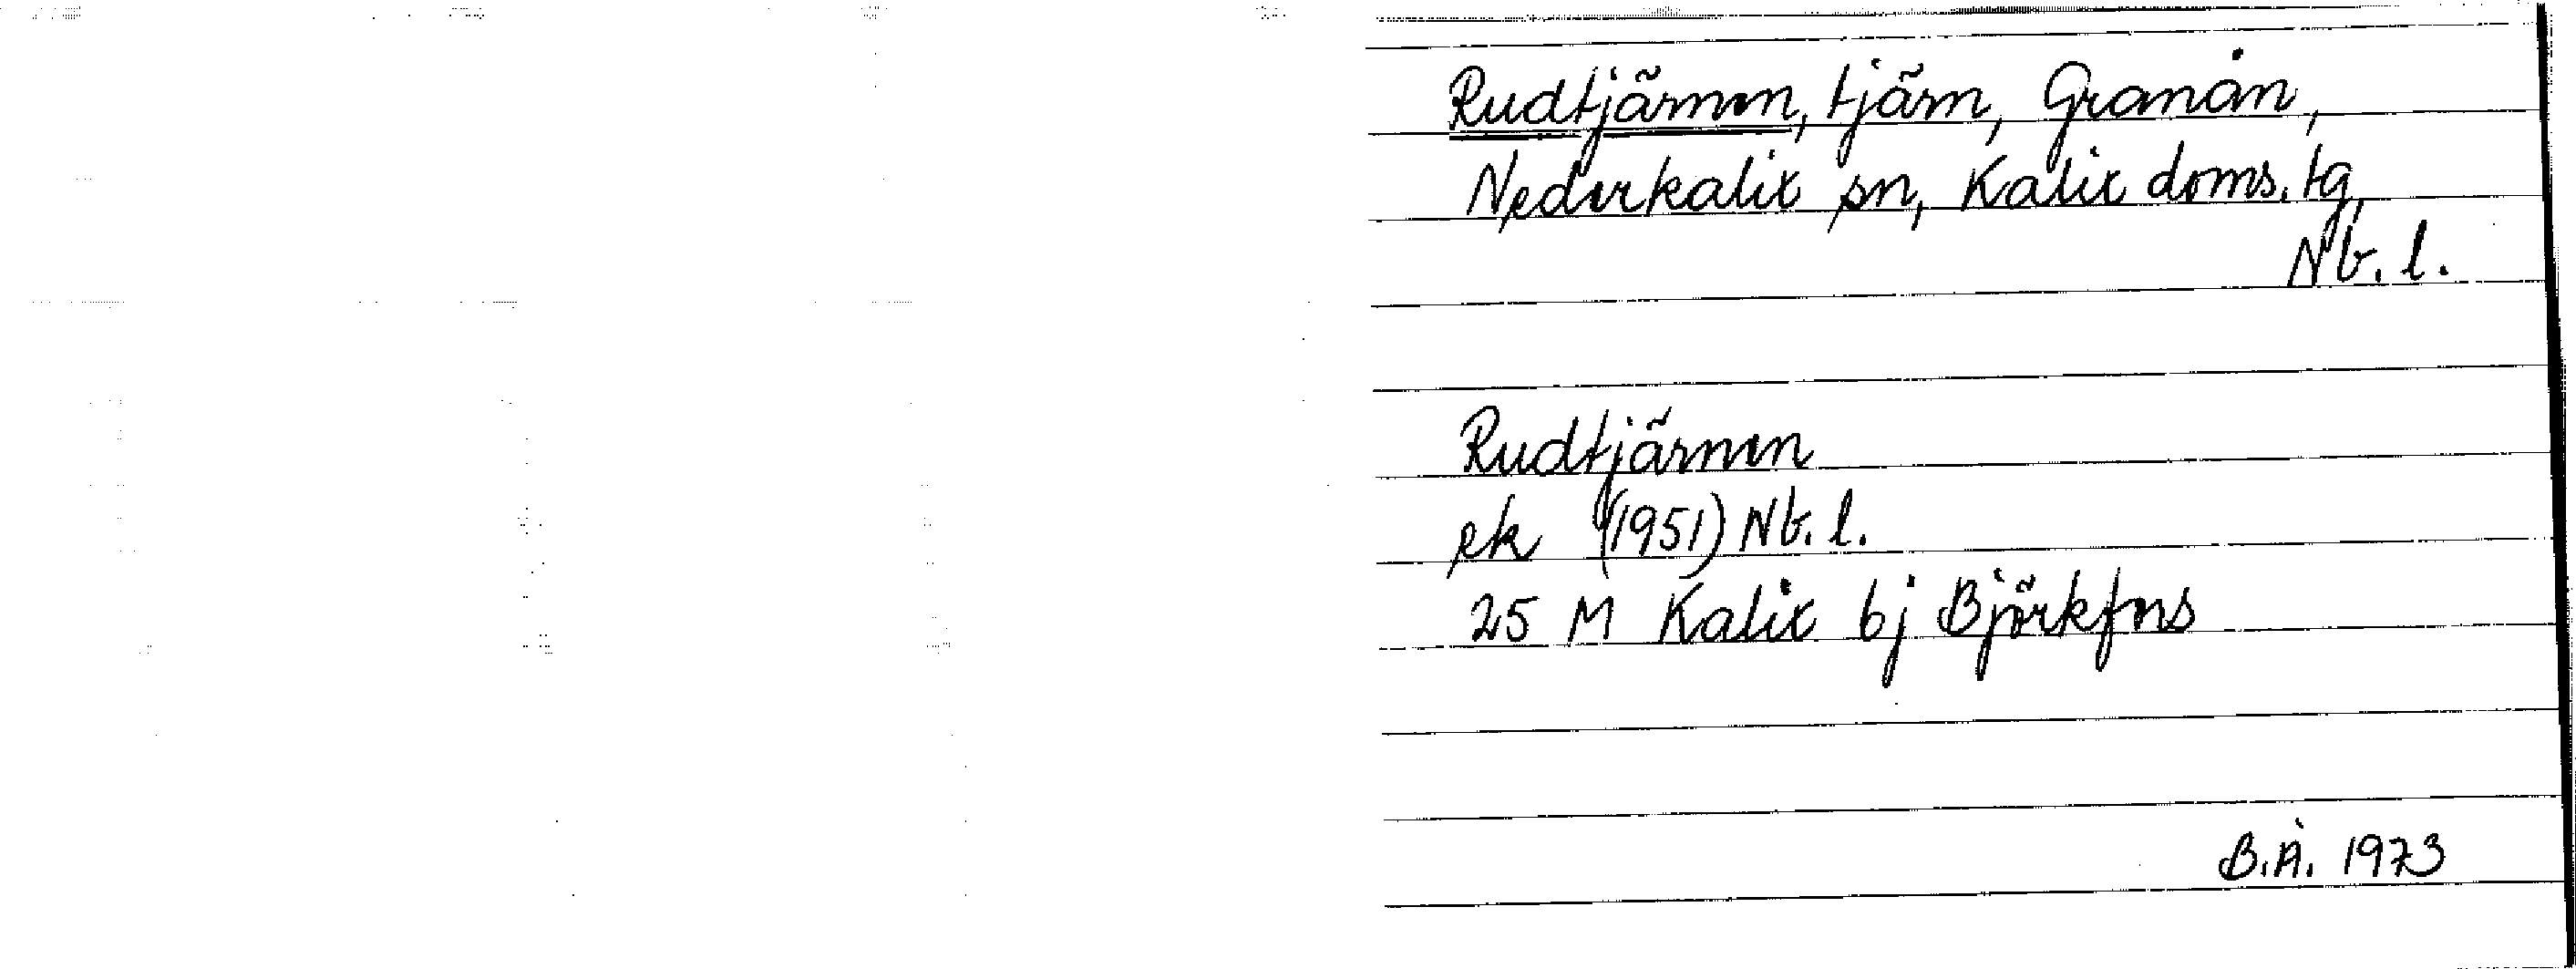 Rudtjärnen, tjärn, Granån,
Nederkalix sn, Kalix doms. tg,
Nb. l.
Rudtjärnen
ek (1951) Nb. l.
25 M Kalix bj Björkfors
B.Å. 1973